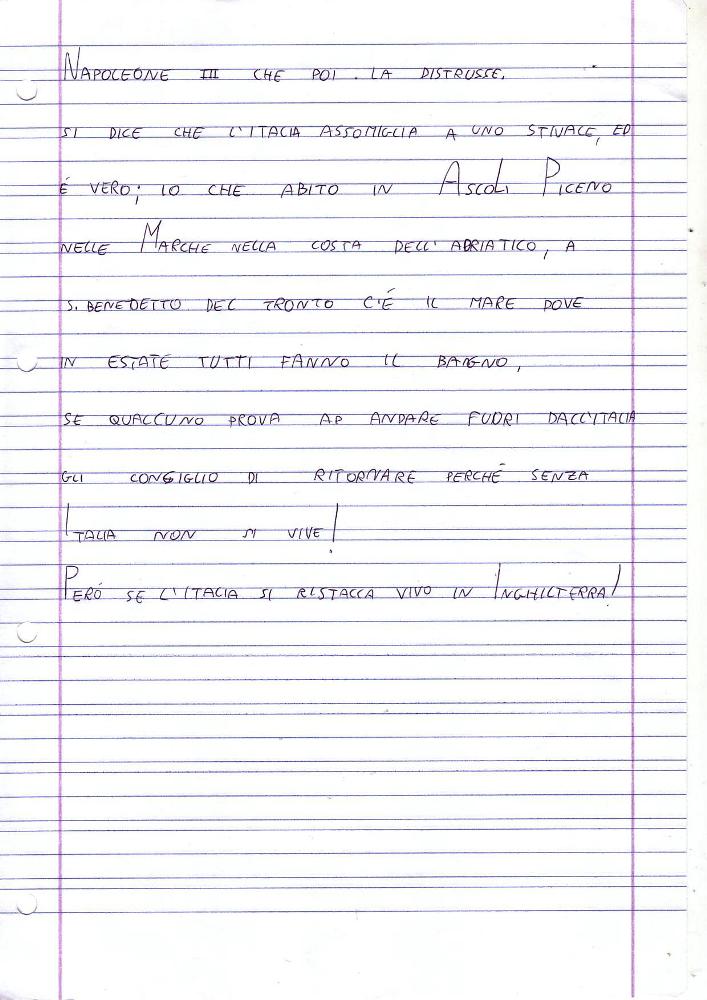 NAPOLEONE III CHE POI . LA DISTRUSSE.
SI DICE CHE L'ITALIA ASSOMIGLIA A UNO STIVALE, ED
É VERO; IO CHE ABITO IN ASCOLI PICENO
NELLE MARCHE NELLA COSTA DELL'ADRIATICO, A
S. BENEDETTO DEL TRONTO C'É IL MARE DOVE
IN ESTATE TUTTI FANNO IL BAGNO,
SE QUALCUNO PROVA AD ANDARE FUORI DALL'ITALIA
GLI CONSIGLIO DI RITORNARE PERCHÉ SENZA
ITALIA NON SI VIVE!
PERÓ SE L'ITALIA SI RISTACCA VIVO IN INGHILTERRA!